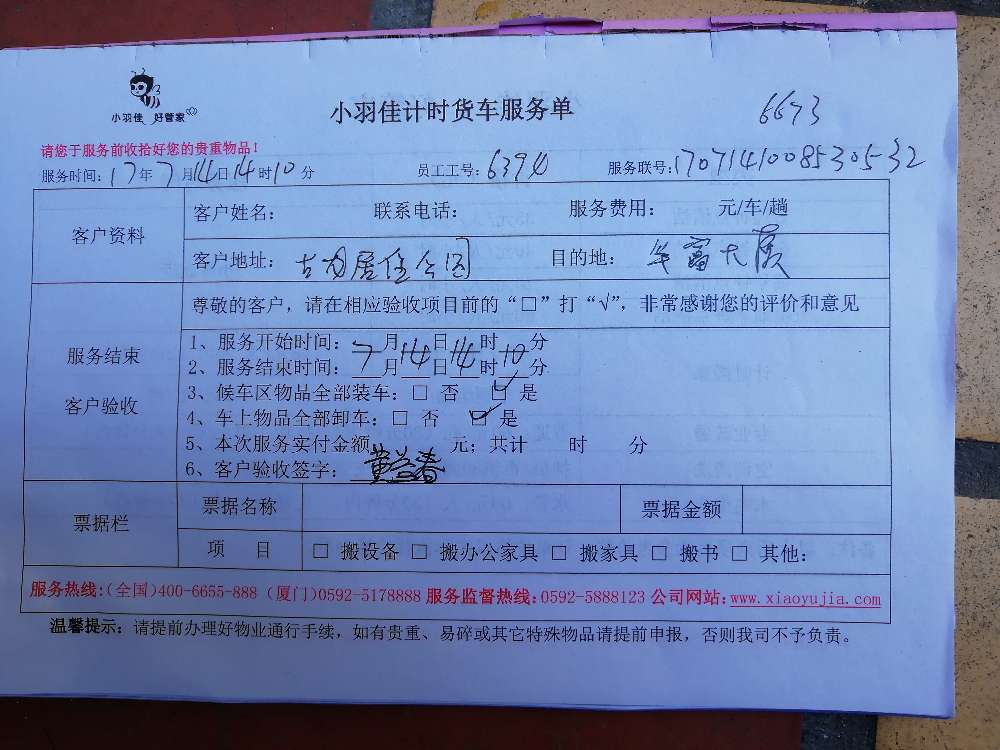 小羽佳 好管家
小羽佳计时货车服务单
6673
请您于服务前收拾好您的贵重物品！
服务时间：17年7月14日14时10分 员工工号：6394 服务联号：170714100853０532
客户资料
客户姓名： 联系电话： 服务费用： 元/车/趟
客户地址：古龙居住公园 目的地：年富大厦
服务结束
客户验收
尊敬的客户，请在相应验收项目前的“□”打“√”，非常感谢您的评价和意见
1、服务开始时间：7月14日14时10分
2、服务结束时间：7月14日14时10分
3、候车区物品全部装车：□ 否 ☑ 是
4、车上物品全部卸车：□ 否 ☑ 是
5、本次服务实付金额 元；共计 时 分
6、客户验收签字：
票据栏
票据名称 票据金额
项 目 □ 搬设备 □ 搬办公家具 □ 搬家具 □ 搬书 □ 其他：
服务热线：(全国)400-6655-888 (厦门)0592-5178888 服务监督热线：0592-5888123 公司网站：www.xiaoyujia.com
温馨提示：请提前办理好物业通行手续，如有贵重、易碎或其它特殊物品请提前申报，否则我司不予负责。